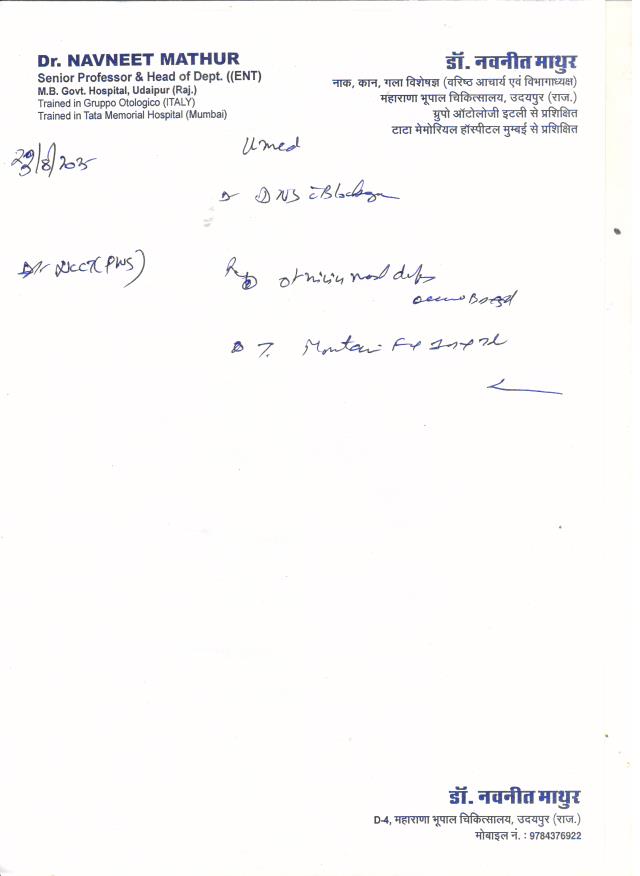 Dr. NAVNEET MATHUR
Senior Professor & Head of Dept. ((ENT)
M.B. Govt. Hospital, Udaipur (Raj.)
Trained in Gruppo Otologico (ITALY)
Trained in Tata Memorial Hospital (Mumbai)
डॉ. नवनीत माथुर
नाक, कान, गला विशेषज्ञ (वरिष्ठ आचार्य एवं विभागाध्यक्ष)
महाराणा भूपाल चिकित्सालय, उदयपुर (राज.)
ग्रुपो ऑटोलोजी इटली से प्रशिक्षित
टाटा मेमोरियल हॉस्पीटल मुम्बई से प्रशिक्षित
Umed
/8/2025
DNS
NCCT (PNS)
Rx
T.
डॉ. नवनीत माथुर
D-4, महाराणा भूपाल चिकित्सालय, उदयपुर (राज.)
मोबाइल नं. : 9784376922